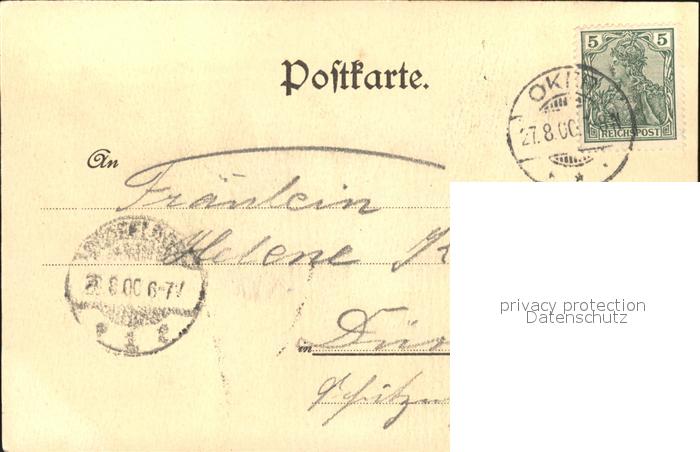 Postkarte.
5 5
REICHSPOST
27.8.00
An
Fräulein
Helene K
8 00 6-7
in Dü
privacy protection
Datenschutz